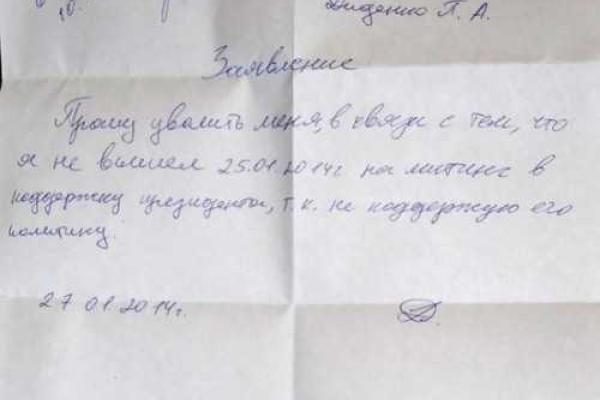 Диденко П. А.
Заявление
Прошу уволить меня, в связи с тем, что
я не вышел 25.01.2014г на митинг в
поддержку президента, т.к. не поддержую его
политику.
27 01.2014г.